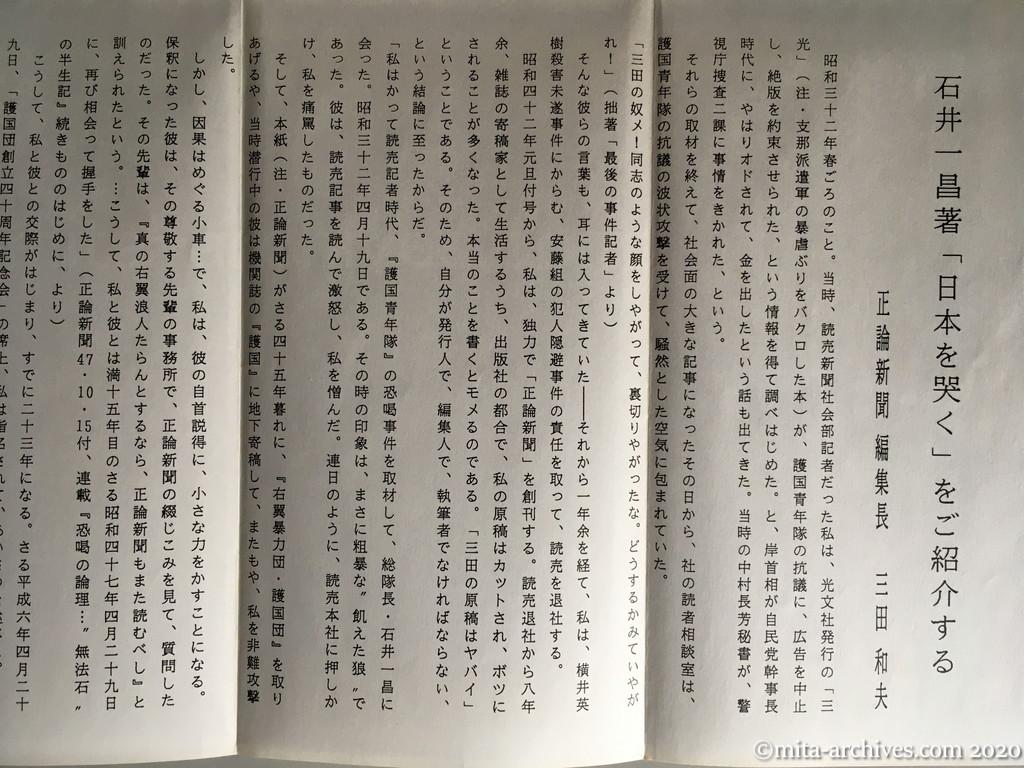 石井一昌著「日本を哭く」をご紹介する
正論新聞 編集長　三田和夫
昭和三十二年春ごろのこと。当時、読売新聞社会部記者だった私は、光文社発行の「三
光」（注・支那派遣軍の暴虐ぶりをバクロした本）が、護国青年隊の抗議に、広告を中止
し、絶版を約束させられた、という情報を得て調べはじめた。と、岸首相が自民党幹事長
時代に、やはりオドされて、金を出したという話も出てきた。当時の中村長芳秘書が、警
視庁捜査二課に事情をきかれた、という。
それらの取材を終えて、社会面の大きな記事になったその日から、社の読者相談室は、
護国青年隊の抗議の波状攻撃を受けて、騒然とした空気に包まれていた。
「三田の奴メ！同志のような顔をしやがって、裏切りやがったな。どうするかみていやが
れ！」（拙著「最後の事件記者」より）
そんな彼らの言葉も、耳には入ってきていた――それから一年余を経て、私は、横井英
樹殺害未遂事件にからむ、安藤組の犯人隠避事件の責任を取って、読売を退社する。
昭和四十二年元旦付号から、私は、独力で「正論新聞」を創刊する。読売退社から八年
余、雑誌の寄稿家として生活するうち、出版社の都合で、私の原稿はカットされ、ボツに
されることが多くなった。本当のことを書くとモメるのである。「三田の原稿はヤバイ」
ということである。そのため、自分が発行人で、編集人で、執筆者でなければならない、
という結論に至ったからだ。
「私はかつて読売記者時代、『護国青年隊』の恐喝事件を取材して、総隊長・石井一昌に
会った。昭和三十二年四月十九日である。その時の印象は、まさに粗暴な〝飢えた狼〟で
あった。彼は、読売記事を読んで激怒し、私を憎んだ。連日のように、読売本社に押しか
け、私を痛罵したものだった。
そして、本紙（注・正論新聞）がさる四十五年暮れに、『右翼暴力団・護国団』を取り
あげるや、当時潜行中の彼は機関誌の『護国』に地下寄稿して、またもや、私を非難攻撃
した。
しかし、因果はめぐる小車…で、私は、彼の自首説得に、小さな力をかすことになる。
保釈になった彼は、その尊敬する先輩の事務所で、正論新聞の綴じこみを見て、質問した
のだった。その先輩は、『真の右翼浪人たらんとするなら、正論新聞もまた読むべし』と
訓えられたという。…こうして、私と彼とは満十五年目のさる昭和四十七年四月二十九日
に、再び相会って握手をした」（正論新聞47・10・15付、連載『恐喝の論理…〝無法石〟
の半生記』続きもののはじめに、より）
こうして、私と彼との交際がはじまり、すでに二十三年になる。さる平成六年四月二十
九日、「護国団創立四十周年記念会」の席上、私は指名されて、
©mita-archives.com 2020